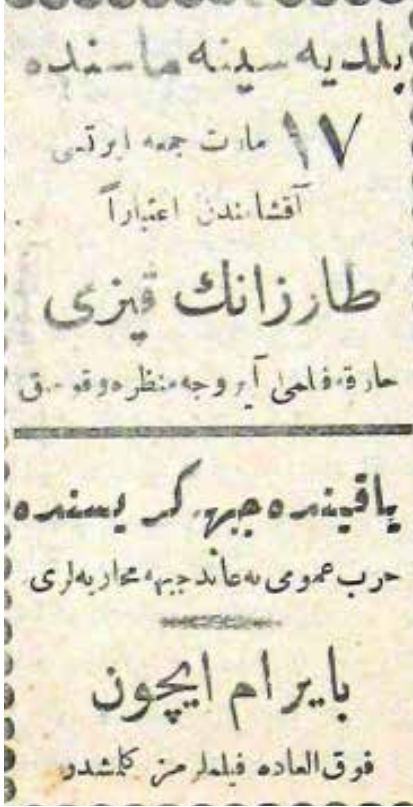 بلديه سينه ماسنده
١٧ مارت جمعه ايرتسى
آقشامندن اعتباراً
طارزانك قيزى
خارقه فلمى آيروجه منظره و قوميق
ياقينده جبهه كريسنده
حرب عمومى يه عائد جبهه محاربه لرى
بايرام ايچون
فوق العاده فيلملرمز كلمشدر